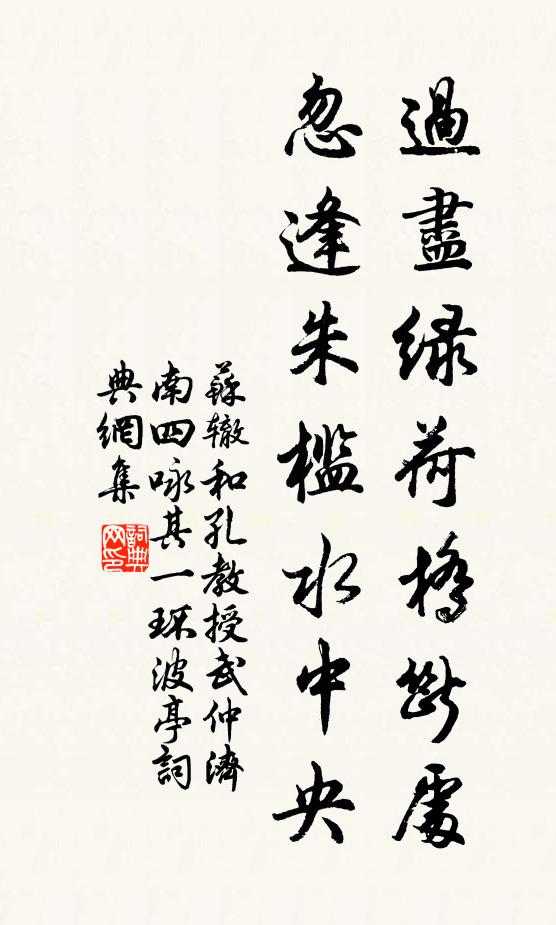 過盡緑荷橋斷處
忽逢朱檻水中央
蘇辙和孔教授武仲濟
南四咏其一環波亭詞
典網集
詞典
网印